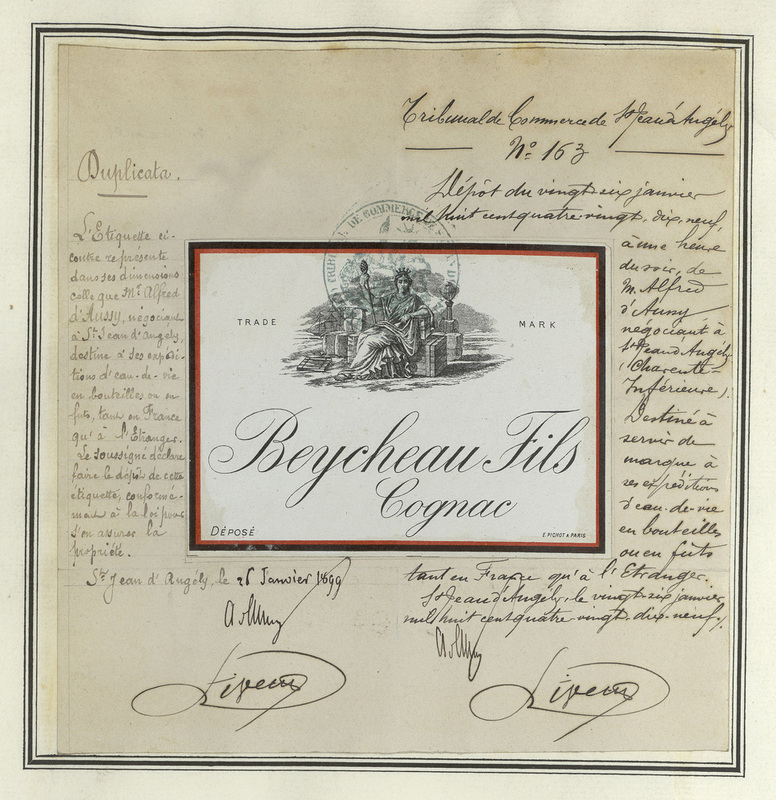 Tribunal de Commerce de St Jean d'Angély
N° 163
Duplicata.
Dépôt du vingt-six janvier
mil huit cent quatre-vingt-dix-neuf,
à une heure
du soir, de
M. Alfred
d'Aussy
négociant à
St Jean d'Angély
(Charente-
Inférieure).
Destiné à
servir de
marque à
ses expéditions
d'eau-de-vie
en bouteilles
ou en fûts
tant en France qu'à l'Etranger.
St Jean d'Angély, le vingt-six janvier
mil huit cent quatre-vingt-dix-neuf.
L'Etiquette ci-
contre représente
dans ses dimensions
celle que Mr Alfred
d'Aussy, négociant
à St Jean d'Angély,
destine à ses expédi-
tions d'eau-de-vie
en bouteilles ou en
futs, tant en France
qu'à l'Etranger.
Le soussigné déclare
faire le dépôt de cette
étiquette, conformé-
ment à la loi pour
s'en assurer la
propriété.
St Jean d'Angély, le 26 Janvier 1899
TRADE MARK
Beycheau Fils
Cognac
DÉPOSÉ
E. PICHOT A PARIS
DE COMMERCE